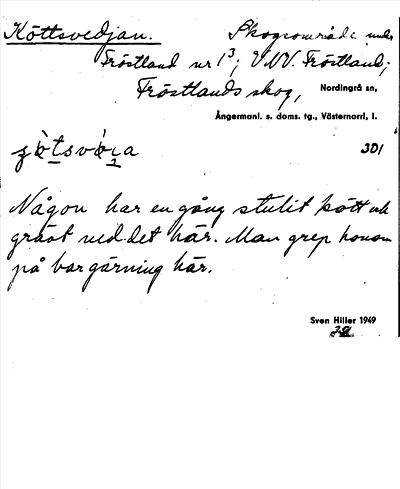 Köttsvedjan. Skogsområde under
Fröstland nr 1³; V.NV. Fröstland;
Fröstlands skog, Nordingrå sn,
Ångermanl. s. doms. tg., Västernorrl, l.
301
Någon har en gång stulit kött och
gräot ned det här. Man grep honom
på bar gärning här.
Sven Hiller 1949